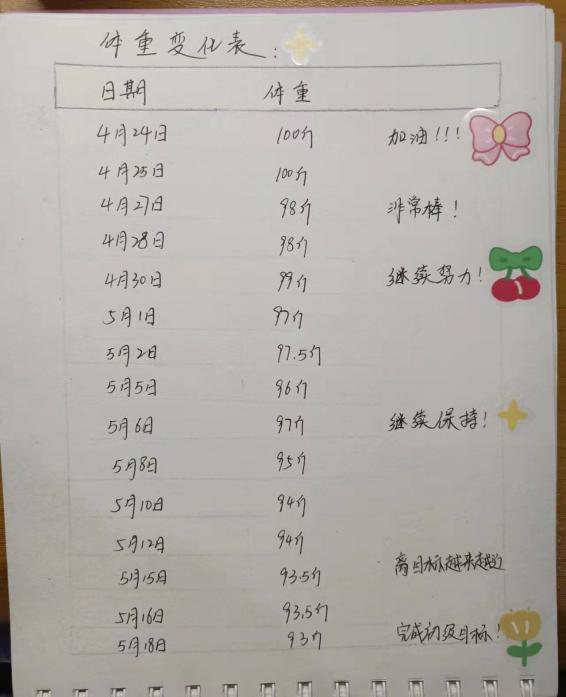 体重变化表:
日期 体重
4月24日 100斤 加油!!!
4月25日 100斤
4月27日 98斤 非常棒!
4月28日 98斤
4月30日 99斤 继续努力!
5月1日 97斤
5月2日 97.5斤
5月5日 96斤
5月6日 97斤 继续保持!
5月8日 95斤
5月10日 94斤
5月12日 94斤
离目标越来越近
5月15日 93.5斤
5月16日 93.5斤
5月18日 93斤 完成初级目标!